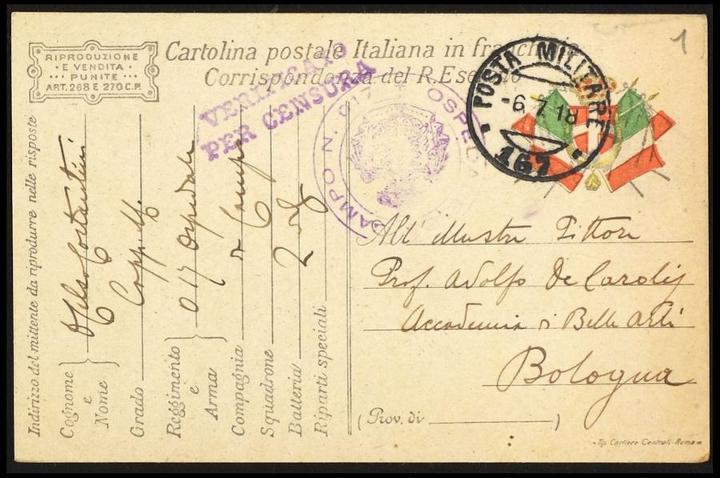 RIPRODUZIONE
E VENDITA
PUNITE
ART. 268 E 270 C.P.
Cartolina postale Italiana in franc
Corrispondenza del R. Ese
VERIFICATO
PER CENSURA
POSTA MILITARE
-6.7.18
167
1
CAMPO N. 017 OSPED
Indirizzo del mittente da riprodurre nelle risposte
Cognome e Nome
Costantini
Grado
Capp
Reggimento e Arma
017 Ospedale
Compagnia
da Campo
Squadrone
Batteria
Riparti speciali
All' Illustre Pittore
Prof. Adolfo De Carolis
Accademia di Belle Arti
Bologna
(Prov. di )
Tip. Cartiere Centrali - Roma